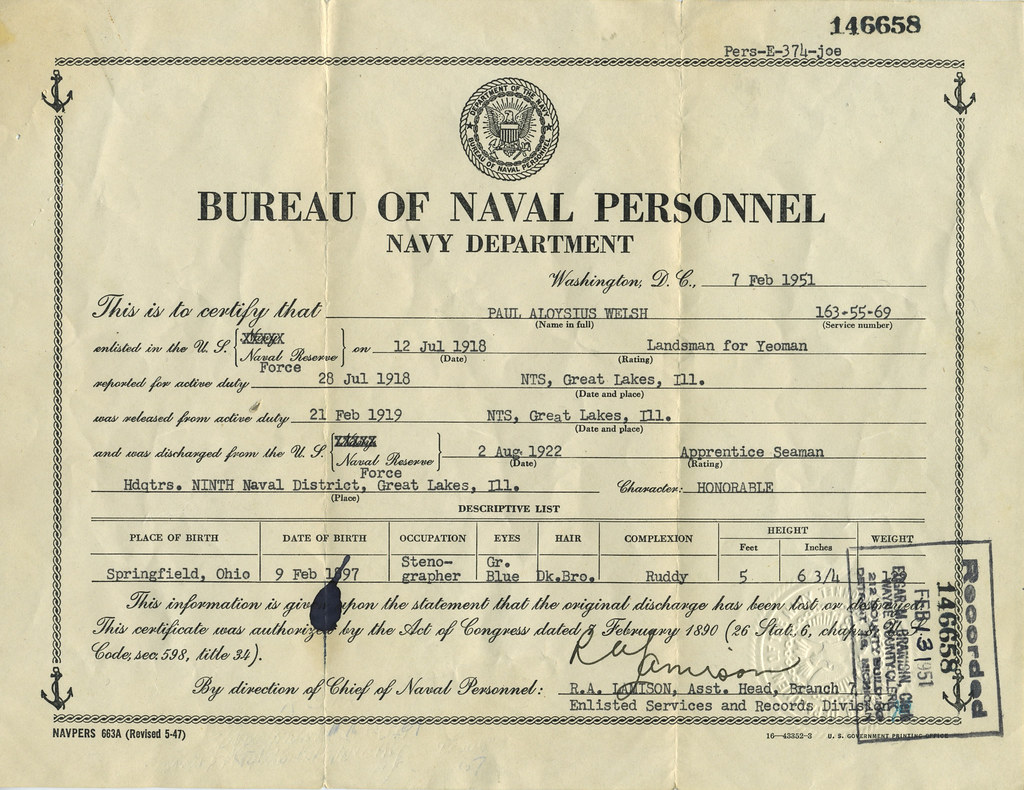 146658
Pers-E-374-joe
DEPARTMENT OF THE NAVY
BUREAU OF NAVAL PERSONNEL
BUREAU OF NAVAL PERSONNEL
NAVY DEPARTMENT
Washington, D. C., 7 Feb 1951
This is to certify that PAUL ALOYSIUS WELSH 163-55-69
(Name in full) (Service number)
enlisted in the U. S. Naval Reserve Force on 12 Jul 1918 Landsman for Yeoman
(Date) (Rating)
reported for active duty 28 Jul 1918 NTS, Great Lakes, Ill.
(Date and place)
was released from active duty 21 Feb 1919 NTS, Great Lakes, Ill.
(Date and place)
and was discharged from the U. S. Naval Reserve Force 2 Aug 1922 Apprentice Seaman
(Date) (Rating)
Hdqtrs. NINTH Naval District, Great Lakes, Ill. Character: HONORABLE
(Place)
DESCRIPTIVE LIST
PLACE OF BIRTH DATE OF BIRTH OCCUPATION EYES HAIR COMPLEXION HEIGHT WEIGHT
Feet Inches
Springfield, Ohio 9 Feb 1897 Steno-grapher Gr. Blue Dk.Bro. Ruddy 5 6 3/4
This information is given upon the statement that the original discharge has been lost or destroyed.
This certificate was authorized by the Act of Congress dated February 1890 (26 Stat. 6, chap.
Code, sec. 598, title 34).
By direction of Chief of Naval Personnel: R.A. Asst. Head, Branch 7
Enlisted Services and Records Division
NAVPERS 663A (Revised 5-47)
16—43352-3 U. S. GOVERNMENT PRINTING OFFICE
Recorded
146658
FEB 13 1951
EDGAR M. BRANIGIN, Clerk
WAYNE COUNTY CLERK
212 COUNTY BUILDING